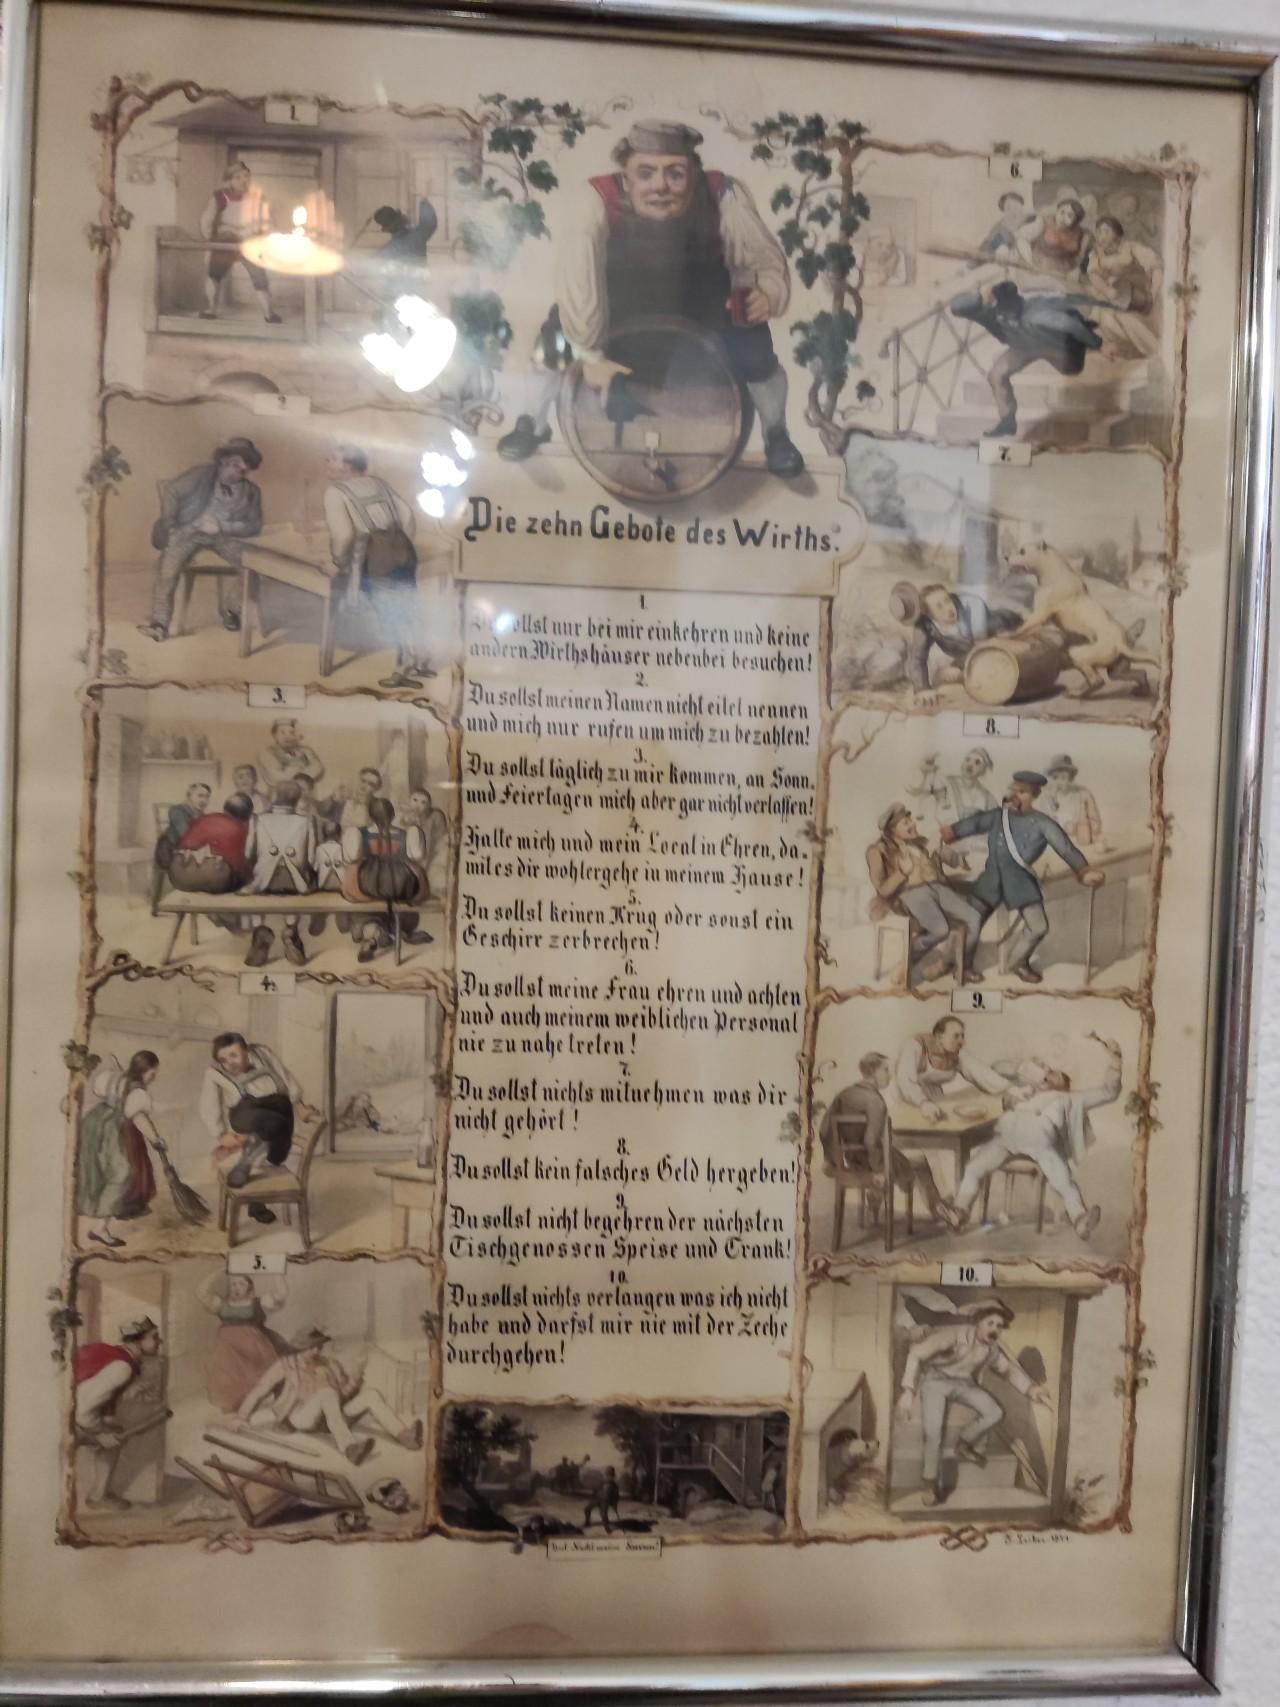 1.
6.
2
7.
3.
8.
4.
9.
5.
10.
Die zehn Gebote des Wirths.
1.
sollst nur bei mir einkehren und keine
andern Wirthshäuser nebenbei besuchen!
2.
Du sollst meinen Namen nicht eitel nennen
und mich nur rufen um mich zu bezahlen!
3.
Du sollst täglich zu mir kommen, an Sonn-
und Feiertagen mich aber gar nicht verlassen!
4.
Halte mich und mein Local in Ehren, da-
mit es dir wohlergehe in meinem Hause!
5.
Du sollst keinen Krug oder sonst ein
Geschirr zerbrechen!
6.
Du sollst meine Frau ehren und achten
und auch meinem weiblichen Personal
nie zu nahe treten!
7.
Du sollst nichts mitnehmen was dir
nicht gehört!
8.
Du sollst kein falsches Geld hergeben!
9.
Du sollst nicht begehren der nächsten
Tischgenossen Speise und Trank!
10.
Du sollst nichts verlangen was ich nicht
habe und darfst mir nie mit der Zeche
durchgehen!